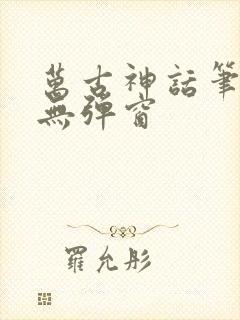 萬古神話筆
無彈窗
羅允彤